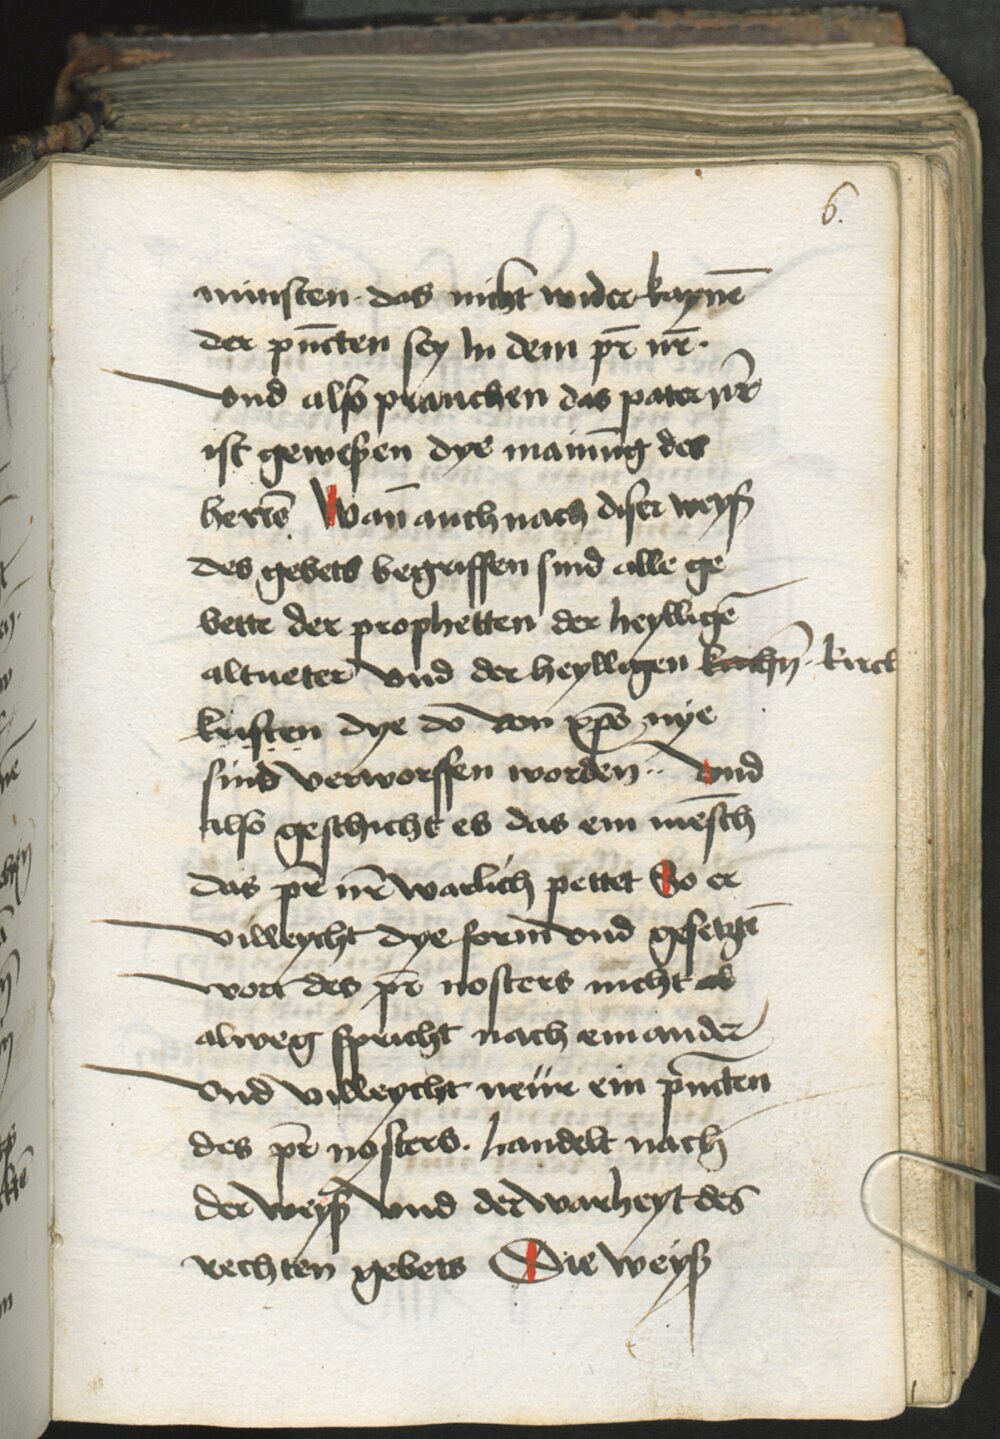 6.
minsten. das nicht wider kaynē
der pūcten sey In dem pr̄ nr̄.
vnd also prauchen das pater nr̄
ist gewesen dye mainūg des
herrē Wan̄ auch nach diser weyß
des gebets begriffen sind alle ge
bette der prophetten der heylligē
altueter vnd der heylligen kirch
kristen dye do von xp̄o nye
sind verworffen worden. Vnd
also geschicht es das ein mēsch
das pr̄ nr̄ warlich pettet So er
villeycht dye form vnd gesetztē
wort des pr̄ nosters nicht
alweg spricht nach einander
vnd villeycht neür ein pūncten
des pr̄ nosters. handelt nach
der weyß vnd der warheyt des
rechten gebets Die weyß